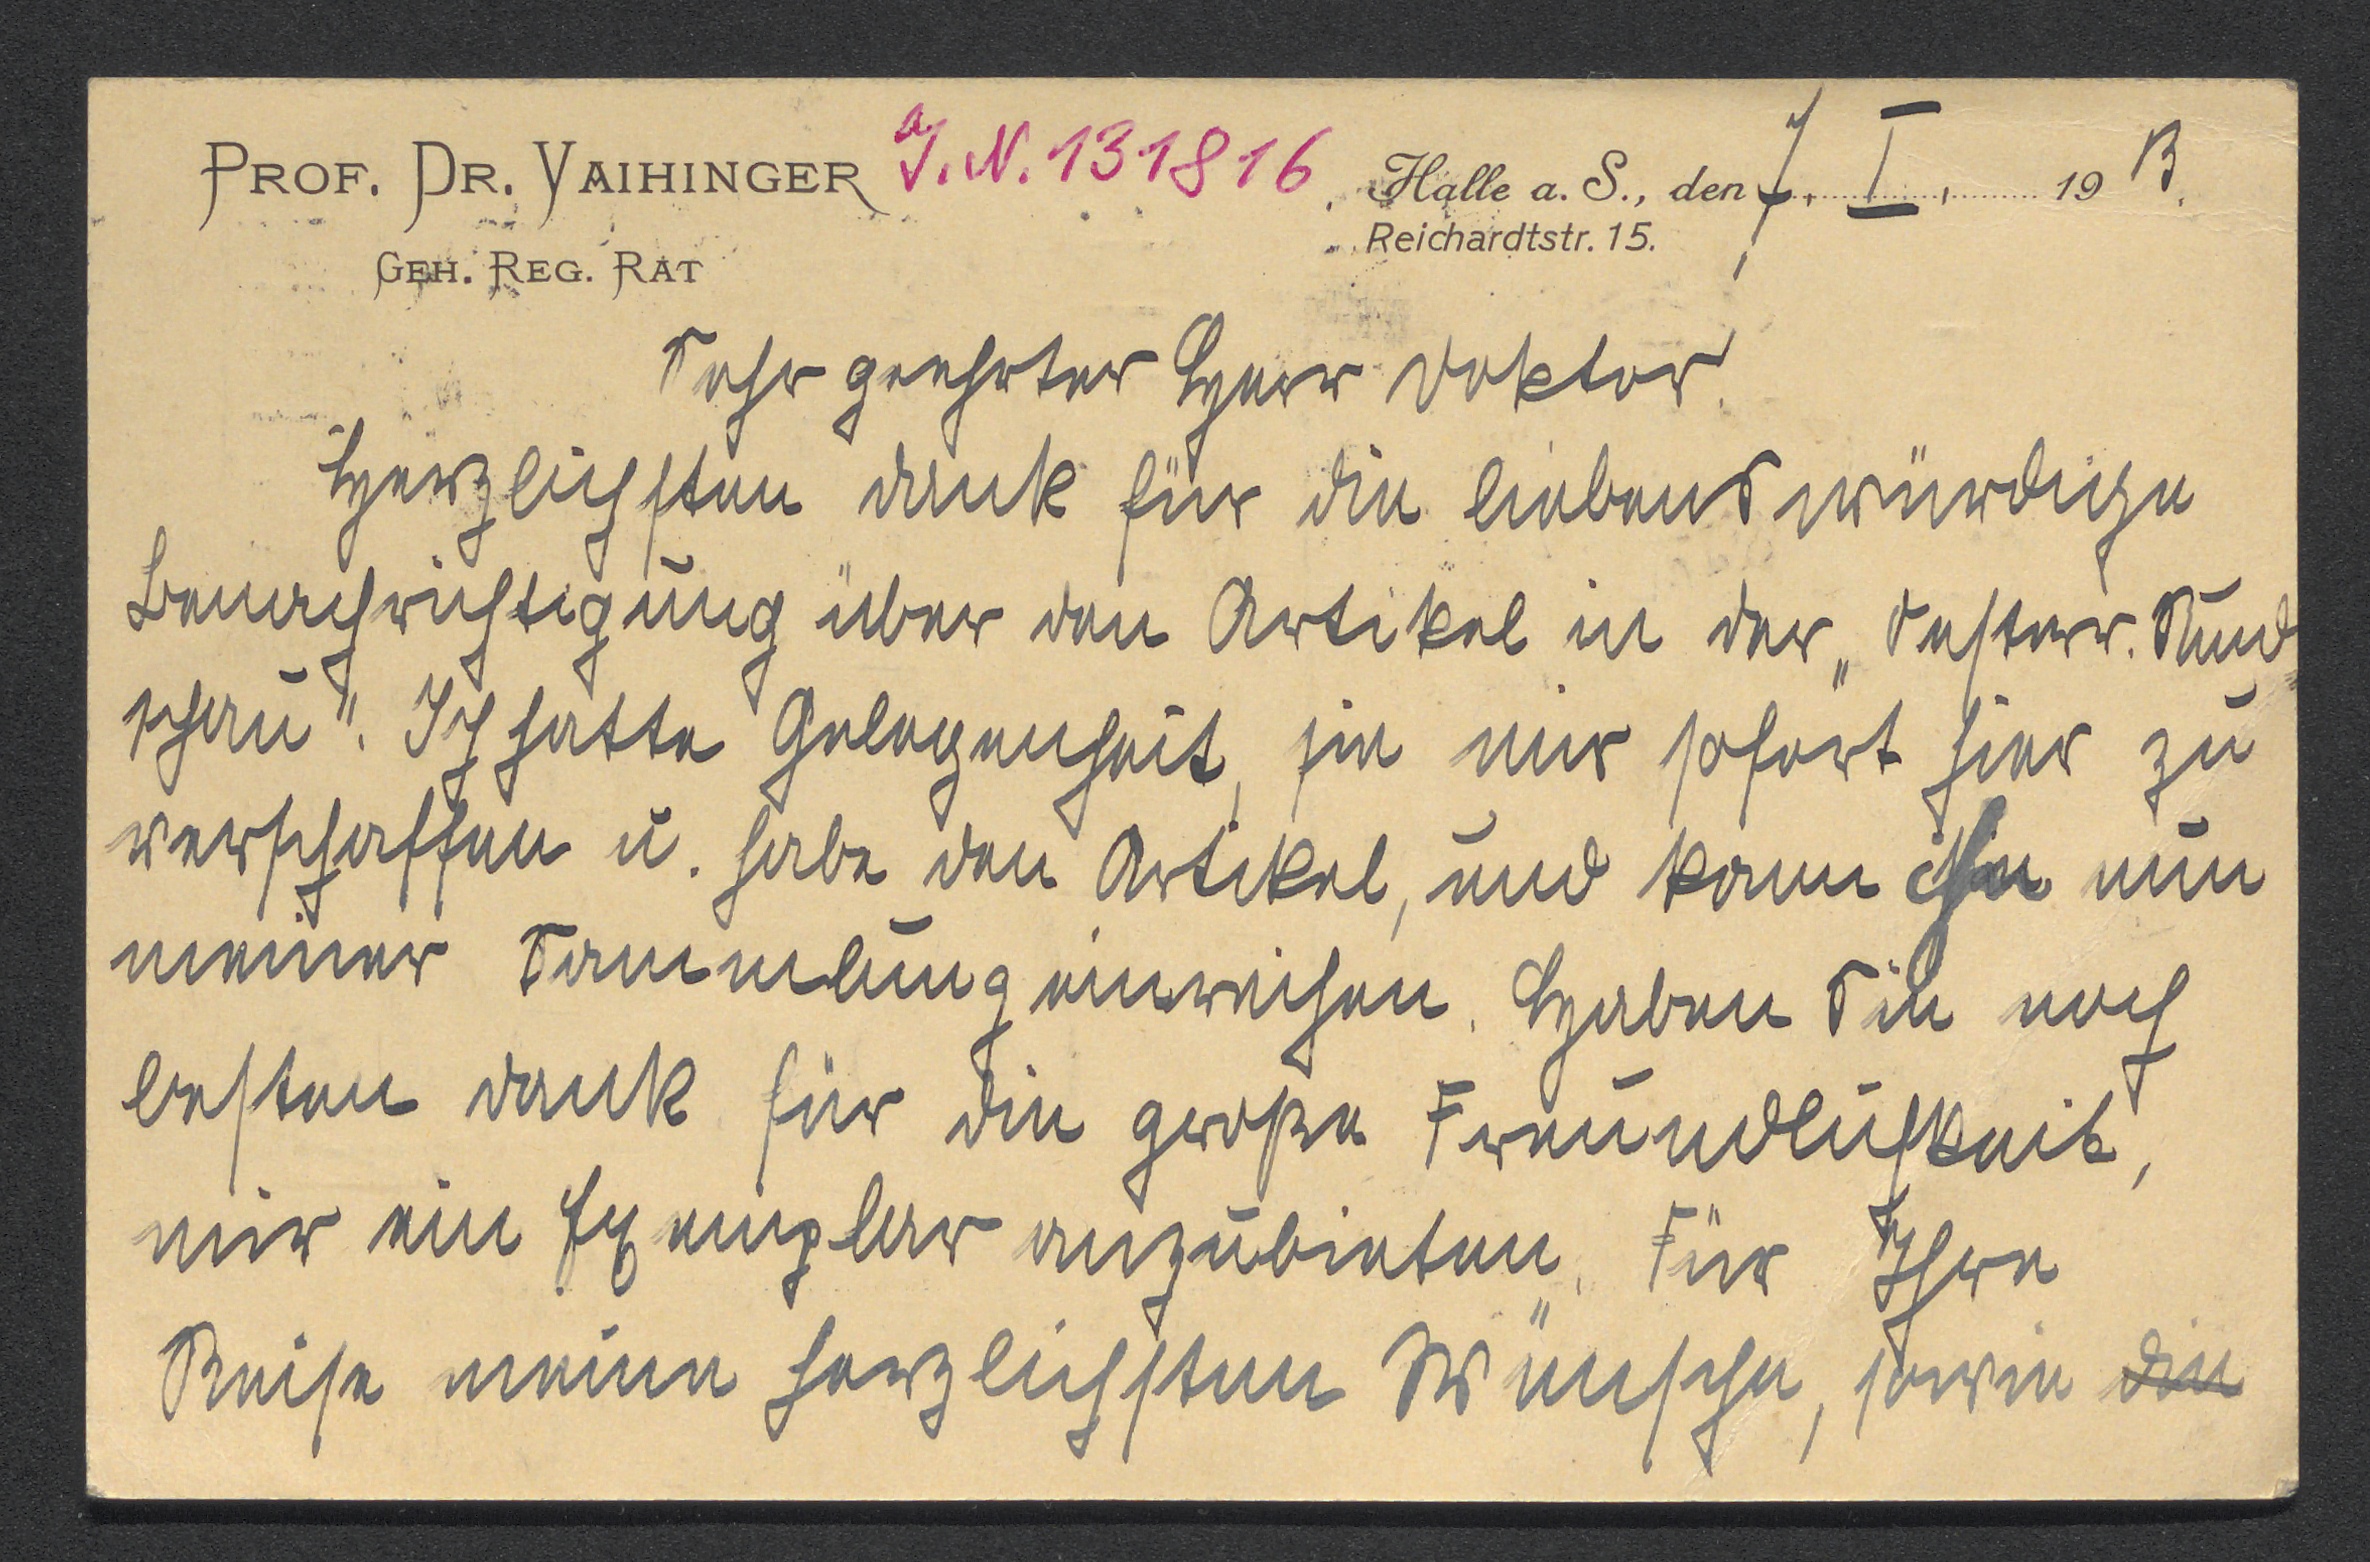 PROF. DR. VAIHINGER
GEH. REG. RAT
a/J. N. 131816
Halle a. S., den 7. I. 1913.
Reichardtstr. 15.
Sehr geehrter Herr Doktor!
Herzlichsten Dank für die liebenswürdige
Benachrichtigung über den Artikel in der „Oesterr. Rund
schau“. Ich hatte Gelegenheit, sie mir sofort hier zu
verschaffen u. habe den Artikel, und kann ihn nun
meiner Sammlung einreihen. Haben Sie noch
besten Dank für die große Freundlichkeit,
mir ein Exemplar anzubieten. Für Ihre
Reise meine herzlichsten Wünsche, sowie die